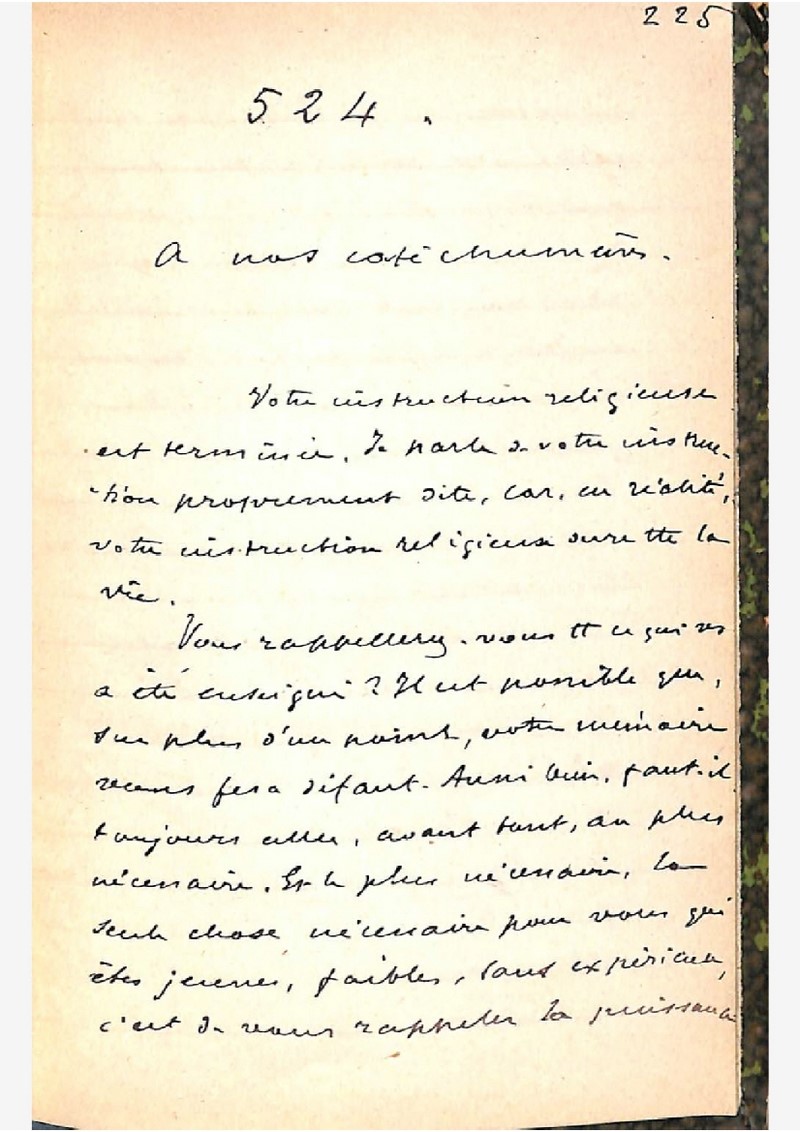 225
524.
A nos catéchumènes.
Votre instruction religieuse
est terminée. Je parle de votre instruc-
tion proprement dite, car, en réalité,
votre instruction religieuse dure tte la
vie.
Vous rappellerez-vous tt ce qui vs
a été enseigné ? Il est possible que,
sur plus d'un point, votre mémoire
vous fera défaut. Aussi bien, faut-il
toujours aller, avant tout, au plus
nécessaire. Et le plus nécessaire, la
seule chose nécessaire pour vous qui
êtes jeunes, faibles, sans expérience,
c'est de vous rappeler la puissance